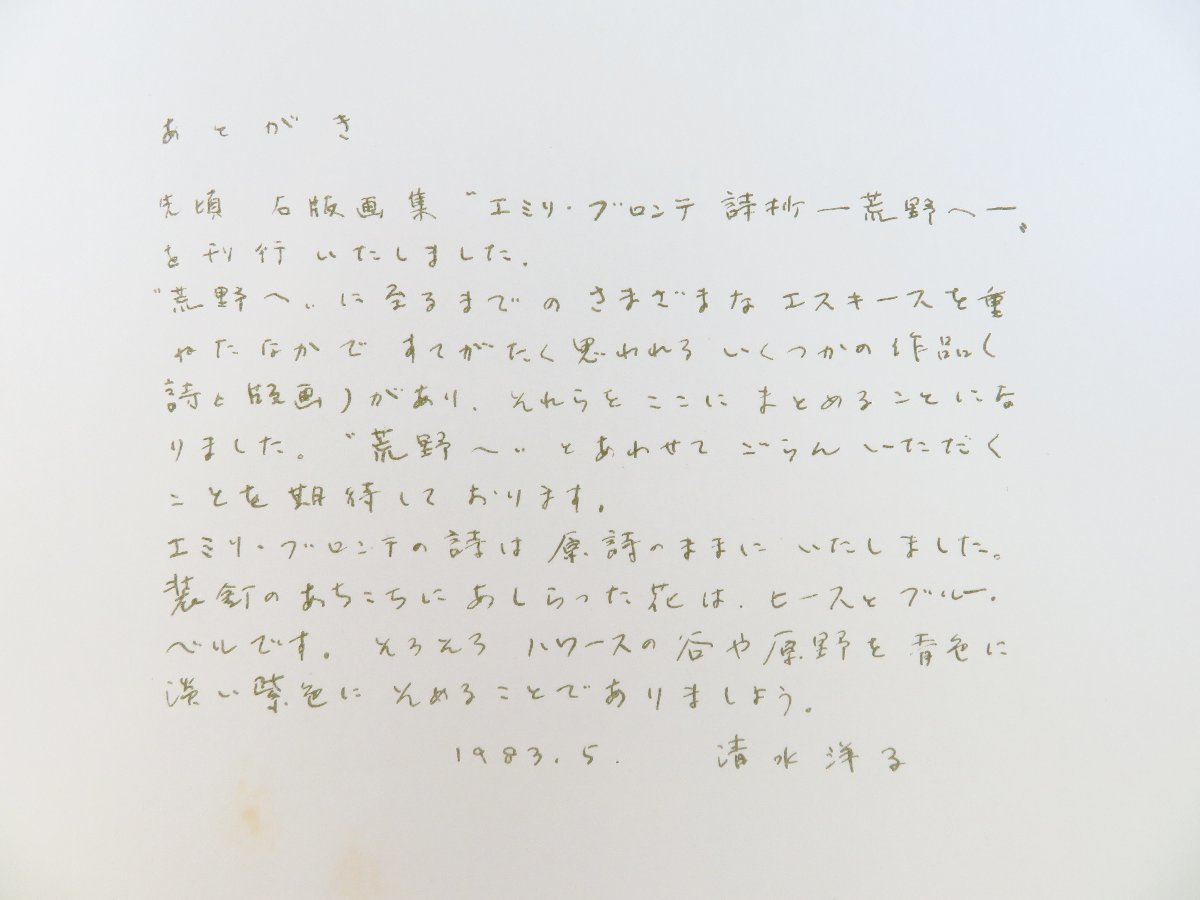 あとがき
先頃 石版画集〝エミリ・ブロンテ 詩抄 ー荒野へー〟
を刊行いたしました.
〝荒野へ〟に至るまでの さまざまな エスキースを重
ねたなかで すてがたく思われる いくつかの作品(
詩と版画)があり、それらを ここに まとめることにな
りました。〝荒野へ〟とあわせて ごらん いただく
ことを期待して おります。
エミリ・ブロンテの詩は 原詩のままに いたしました。
装釘のあちこちにあしらった花は、ヒースとブルー・
ベルです。そろそろ ハワースの谷や原野を青色に
淡い紫色に そめることでありましょう。
1983.5. 清水洋子